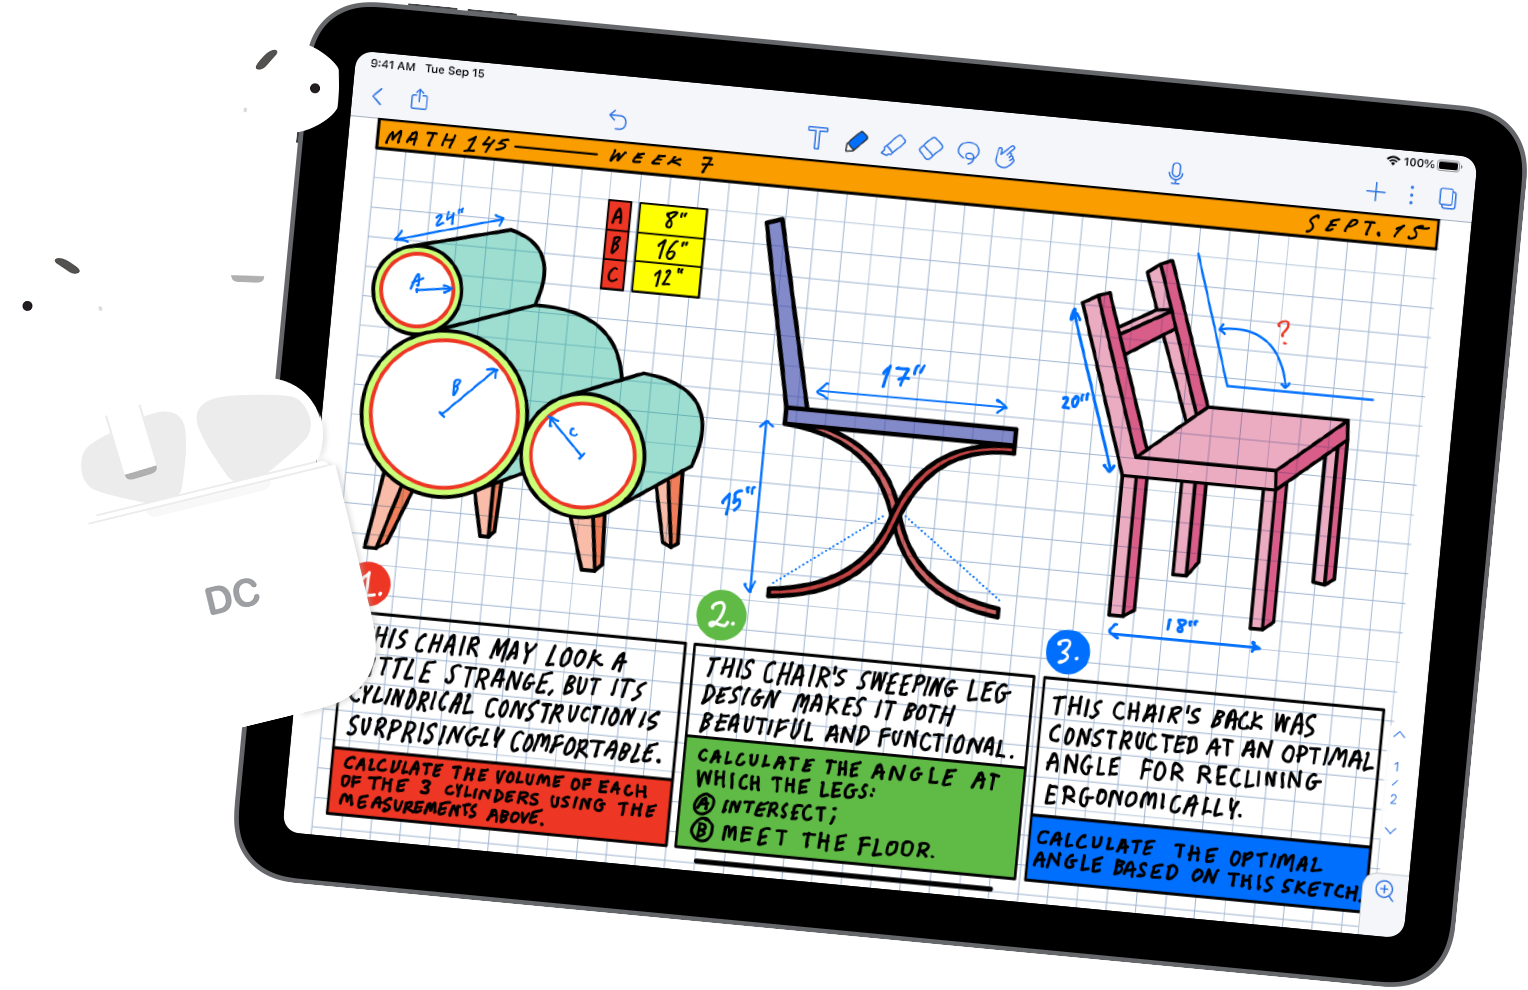 9:41 AM Tue Sep 15
100%
MATH 145 WEEK 7
SEPT. 15
24"
A
B
C
A 8"
B 16"
C 12"
17"
15"
20"
?
18"
DC
1.
HIS CHAIR MAY LOOK A
TTLE STRANGE, BUT ITS
CYLINDRICAL CONSTRUCTION IS
SURPRISINGLY COMFORTABLE.
CALCULATE THE VOLUME OF EACH
OF THE 3 CYLINDERS USING THE
MEASUREMENTS ABOVE.
2.
THIS CHAIR'S SWEEPING LEG
DESIGN MAKES IT BOTH
BEAUTIFUL AND FUNCTIONAL.
CALCULATE THE ANGLE AT
WHICH THE LEGS:
A INTERSECT;
B MEET THE FLOOR.
3.
THIS CHAIR'S BACK WAS
CONSTRUCTED AT AN OPTIMAL
ANGLE FOR RECLINING
ERGONOMICALLY.
CALCULATE THE OPTIMAL
ANGLE BASED ON THIS SKETCH.
1
/
2